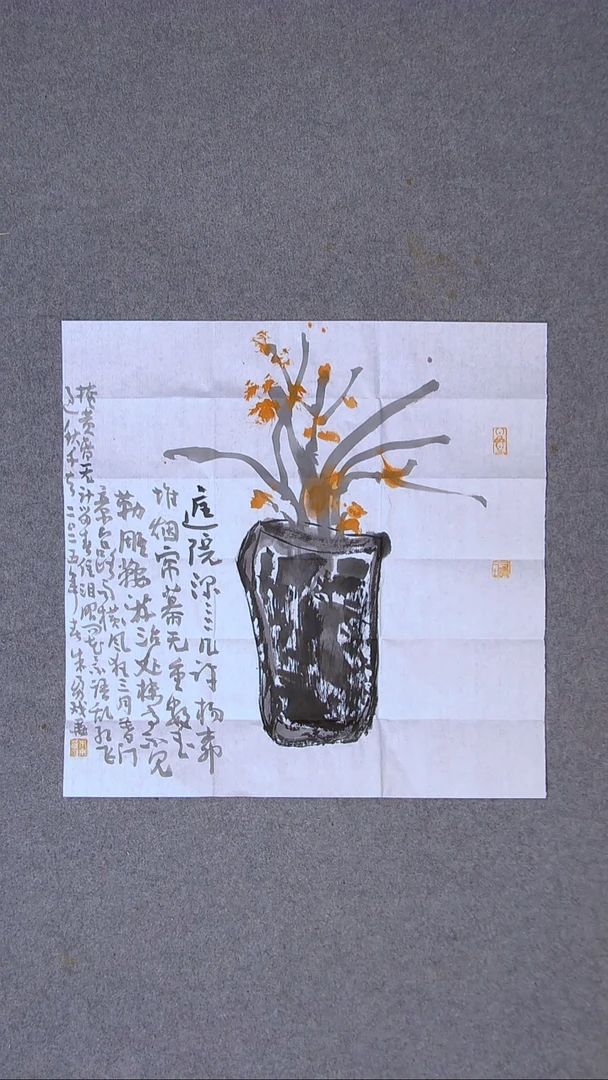 庭院深〻〻几许杨柳
堆烟帘幕无重数玉
勒雕鞍游冶处楼高不见
章台路雨横风狂三月暮门
掩黄昏无计留春住泪眼问花花不语乱红飞
过秋千去二〇二五年春朱